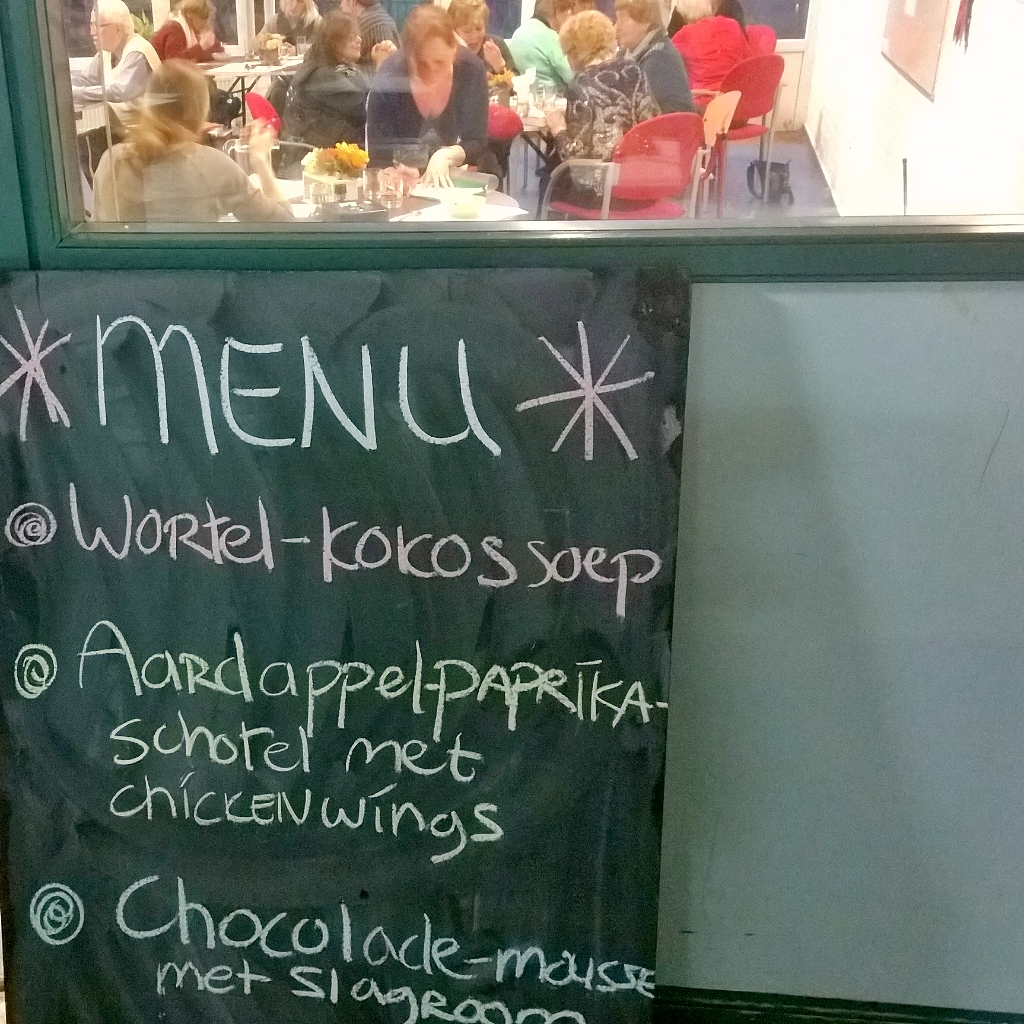 MENU
Wortel-kokossoep
Aardappel-paprika-
schotel met
chickenwings
Chocolade-mousse
met slagroom